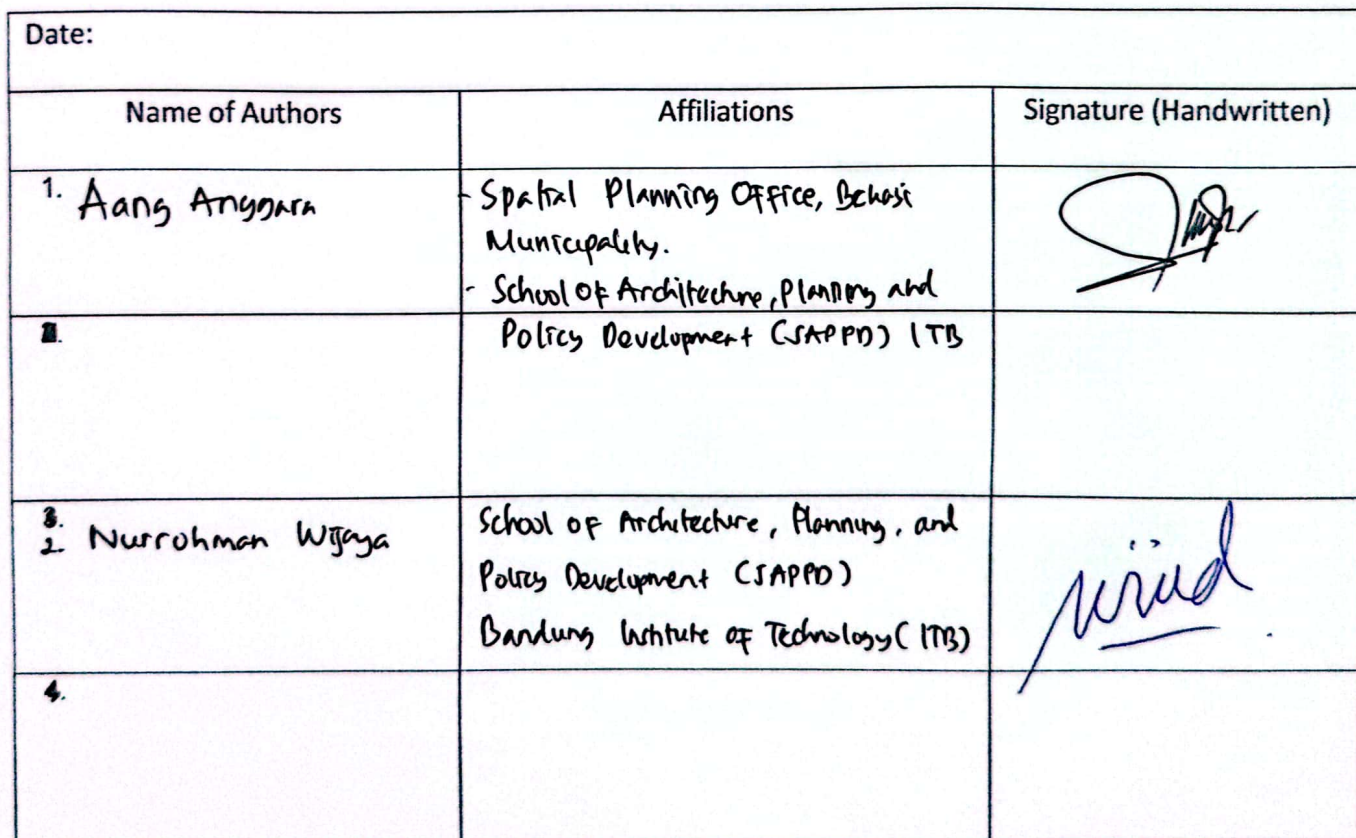 Date:
Name of Authors
Affiliations
Signature (Handwritten)
1. Aang Anggara
- Spatial Planning Office, Bekasi
Municipality.
- School of Architecture, Planning and
Policy Development (SAPPD) ITB
3.
2 Nurrohman Wijaya
School of Architecture, Planning, and
Policy Development (SAPPD)
Bandung Institute of Technology (ITB)
4.